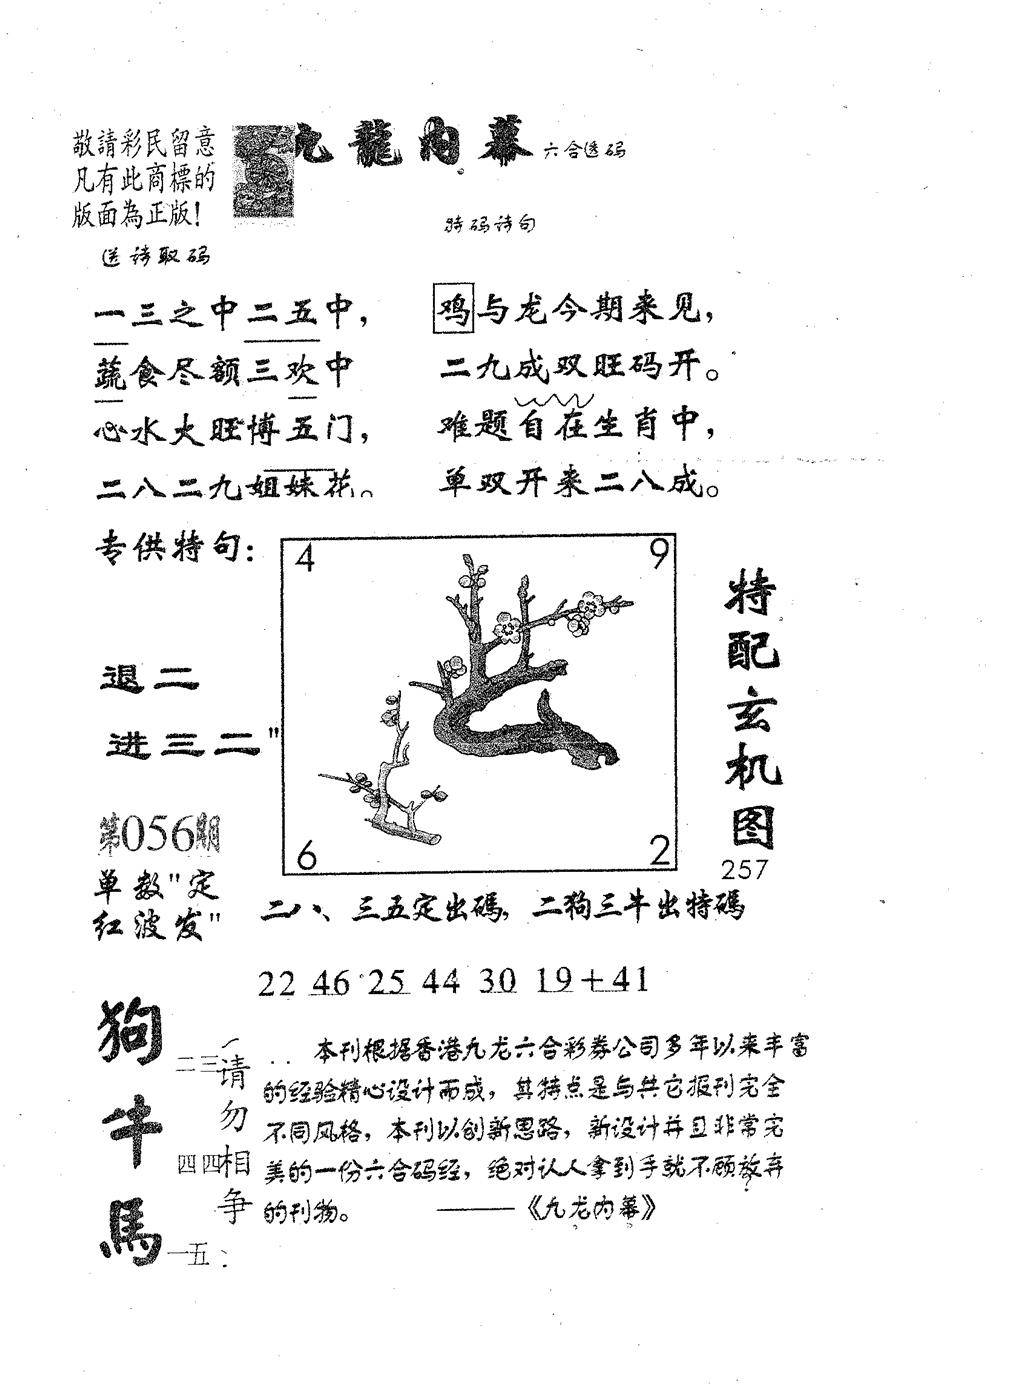 敬請彩民留意
凡有此商標的
版面為正版!
九龍內幕 六合透码
特码诗句
送诗取码
一三之中二五中,
蔬食尽额三欢中
心水火旺博五门,
二八二九姐妹花。
鸡与龙今期来见,
二九成双旺码开。
难题自在生肖中,
单双开来二八成。
专供特句:
退二
进三二"
4 9
6 2
特配玄机图
257
第056期
单数"定
红波发"
二八、三五定出碼, 二狗三牛出特碼
22 46 25 44 30 19+41
狗 二三
牛 四四
馬 一五
请勿相争
本刊根据香港九龙六合彩券公司多年以来丰富
的经验精心设计而成,其特点是与其它报刊完全
不同风格,本刊以创新思路,新设计并且非常完
美的一份六合码经,绝对认人拿到手就不顾放弃
的刊物。 ——《九龙内幕》